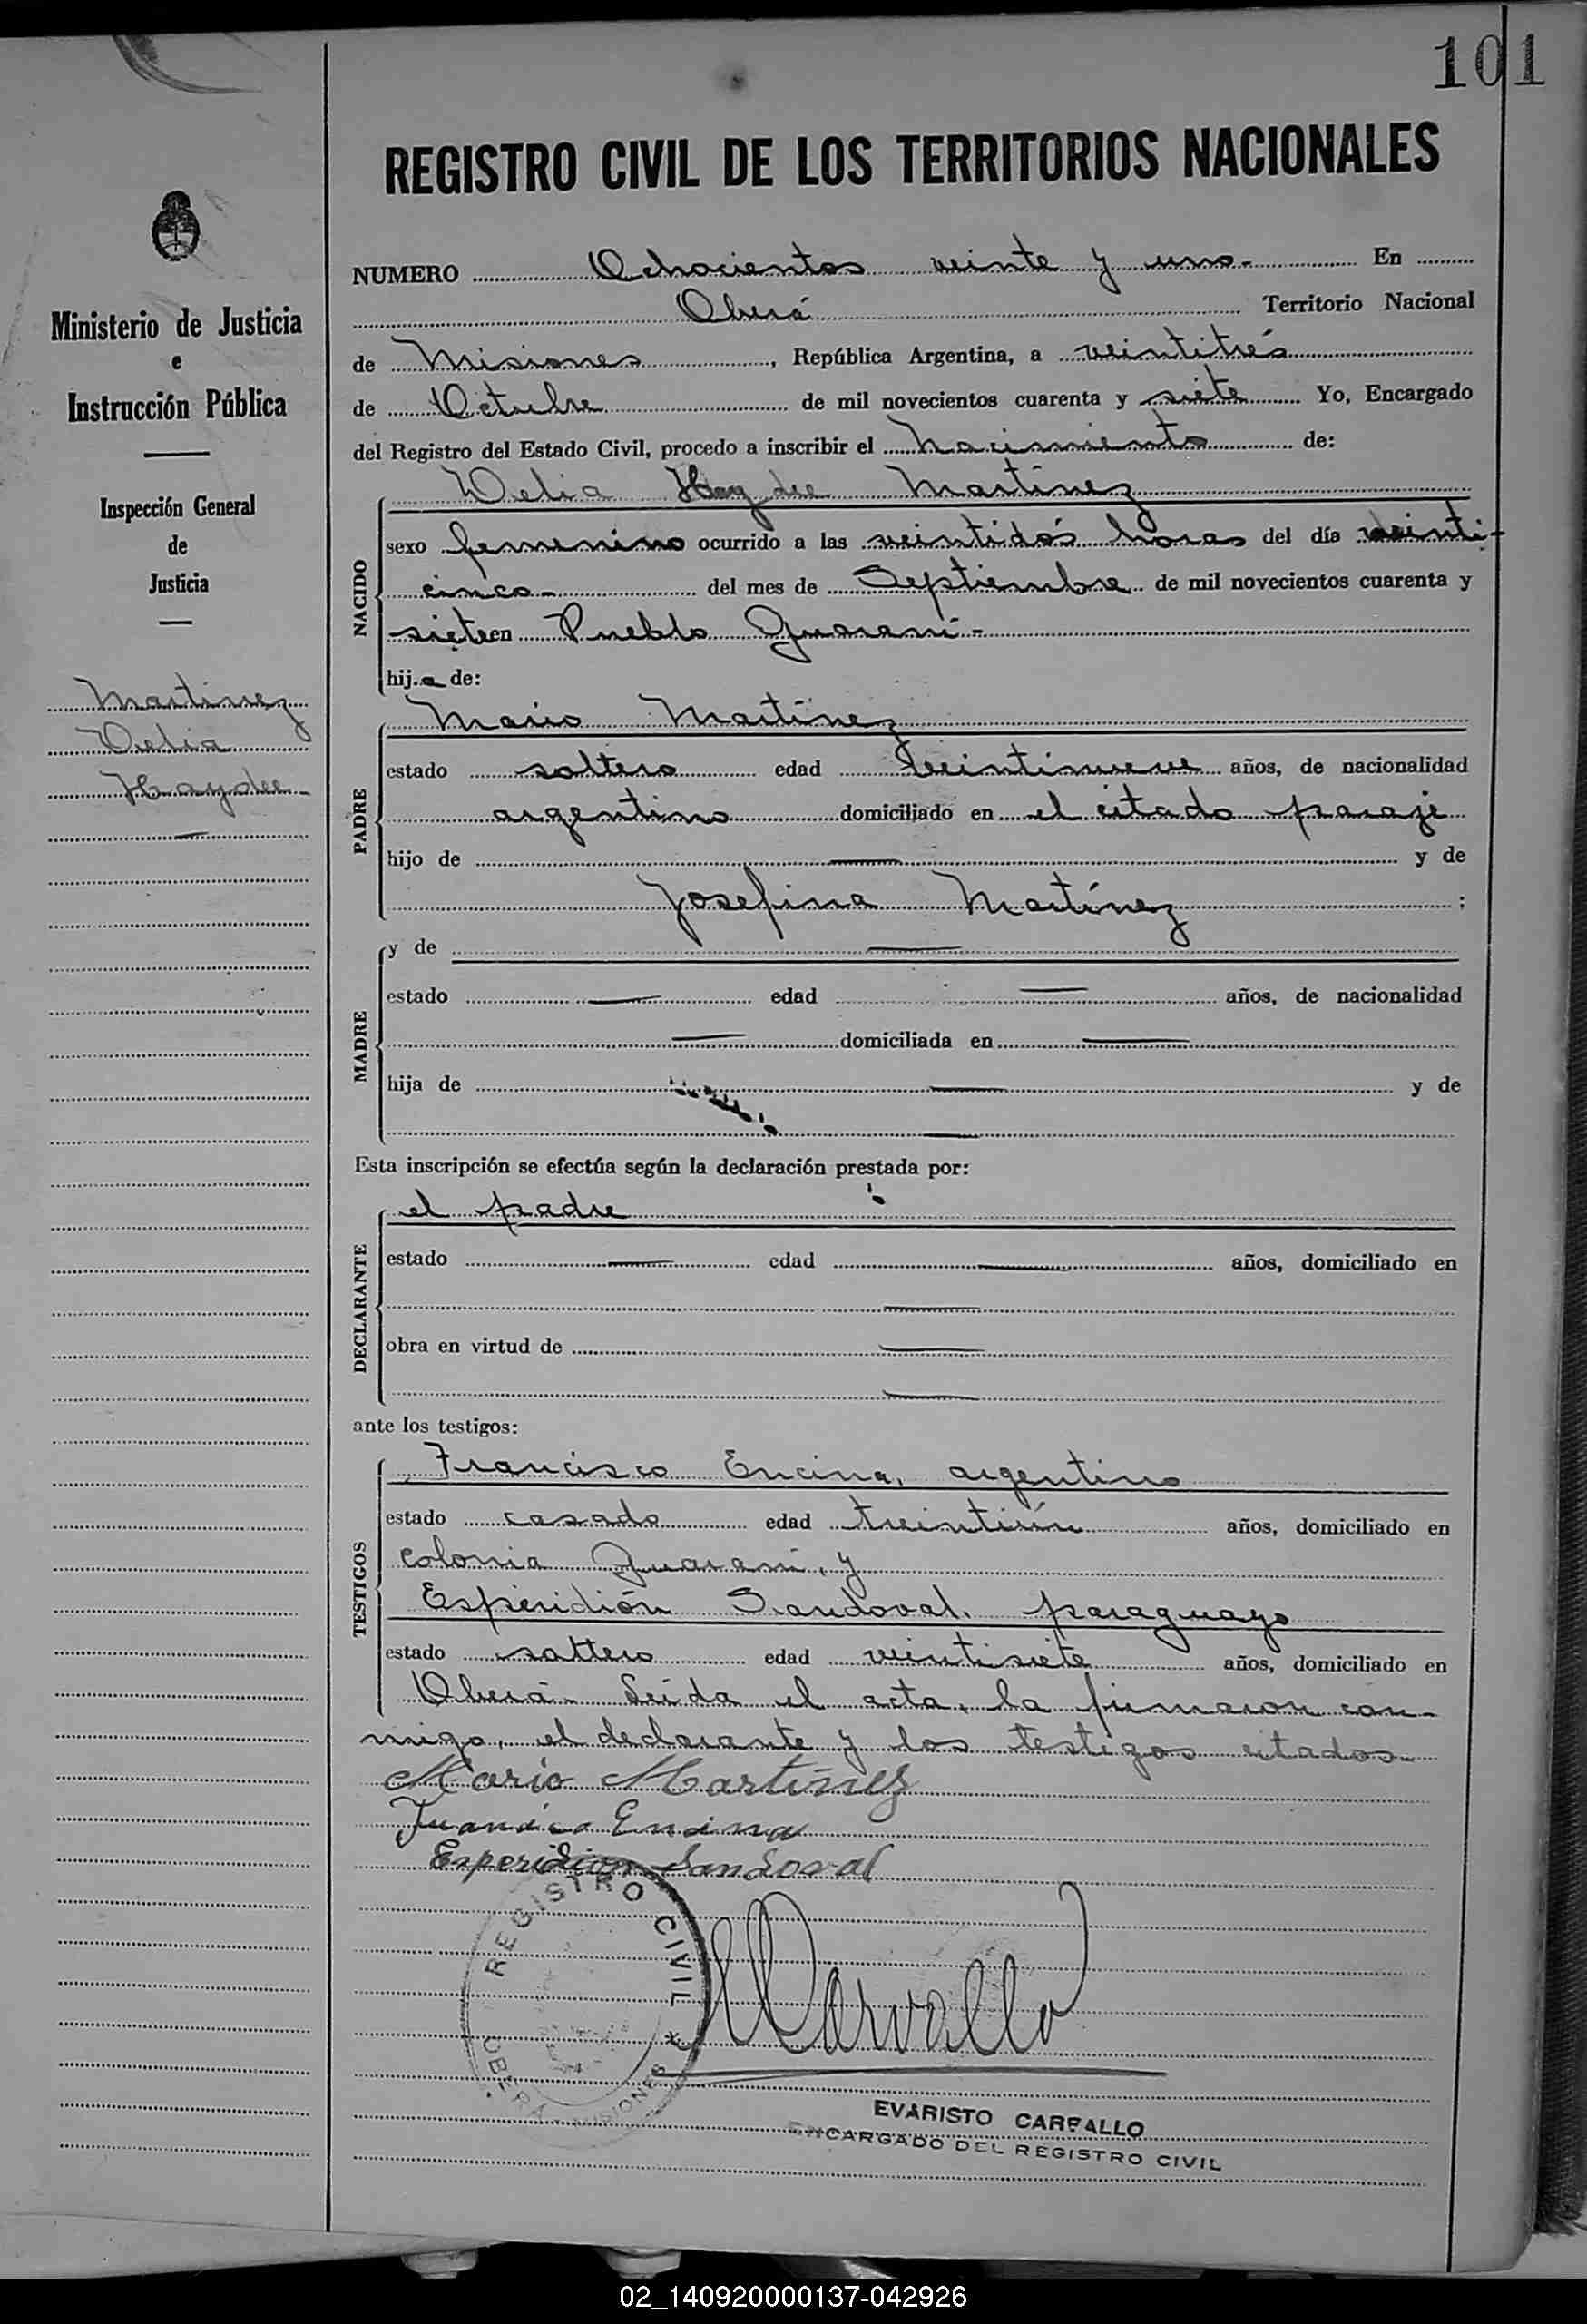 101
REGISTRO CIVIL DE LOS TERRITORIOS NACIONALES
Ministerio de Justicia
e
Instrucción Pública
Inspección General
de
Justicia
Martinez
Delia
Haydee
NUMERO Ochocientos veinte y uno - En
Oberá Territorio Nacional
de Misiones, República Argentina, a veintitrés
de Octubre de mil novecientos cuarenta y siete Yo, Encargado
del Registro del Estado Civil, procedo a inscribir el nacimiento de:
NACIDO
Delia Haydee Martinez
sexo femenino ocurrido a las veintidós horas del día veinti-
cinco - del mes de Septiembre de mil novecientos cuarenta y
siete en Pueblo Guaraní -
hija de:
PADRE
Mario Martinez
estado soltero edad veintinueve años, de nacionalidad
argentino domiciliado en el citado paraje
hijo de — y de
Josefina Martínez ;
MADRE
y de —
estado — edad — años, de nacionalidad
— domiciliada en —
hija de — y de
—
Esta inscripción se efectúa según la declaración prestada por:
DECLARANTE
el padre
estado — edad — años, domiciliado en
—
obra en virtud de —
—
ante los testigos:
TESTIGOS
Francisco Encina, argentino
estado casado edad treintiún años, domiciliado en
colonia Guaraní, y
Esperidión Sandoval, paraguayo
estado soltero edad veintisiete años, domiciliado en
Oberá - Leída el acta, la firmaron con-
migo, el declarante y los testigos citados
Mario Martinez
Encina
Esperidion Sandoval
REGISTRO CIVIL
OBERA - MISIONES
Carvallo
EVARISTO CARVALLO
ENCARGADO DEL REGISTRO CIVIL
02_140920000137-042926